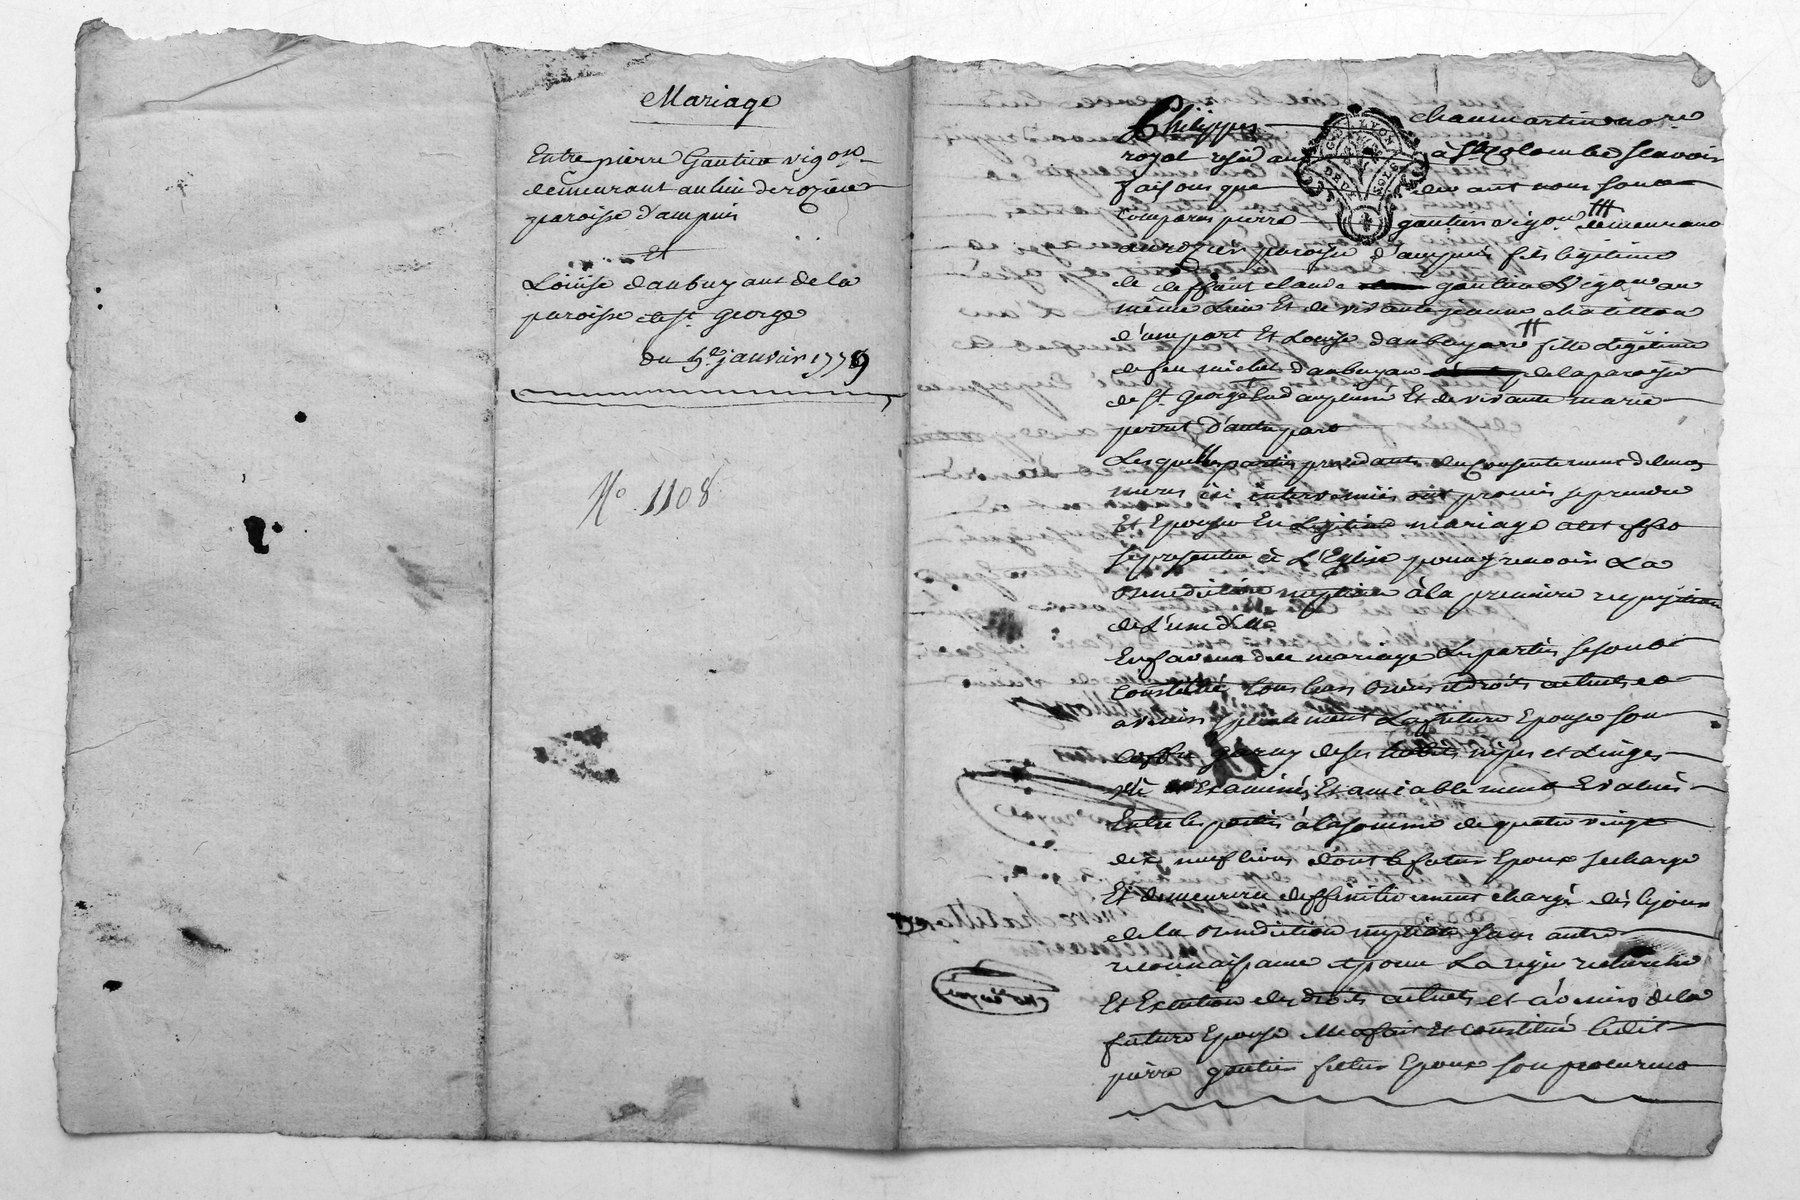 Mariage
Entre pierre Gautier vigon
demeurant au lieu de rozier
paroisse d'ampuis
Et
Louise daubuyant de la
paroisse de St. George
du 5e. janvier 1779
No. 1108
Philippes chaumartin no.re
royal à Ste Colombe scavoir
faisons que devant nous sont
comparus pierre gautier vigon demeurant
au rozier paroisse d'ampuis fils legitime
de deffunt claude gautier Vigon au
même Lieu Et de vivante jeanne chatillon
d'une part Et Louise daubuyant fille Legitime
de feu michel daubuyan de la paroisse
de St. George Et de vivante marie
perret d'autre part
Lesquelles parties procedantes du Consentement de leurs
meres ici intervenües ont promis se prendre
Et Epouser En Legitime mariage a cet effet
se presenter à L'Eglise pour y recevoir La
Benediction nuptiale à la premiere requisition
de L'une d'elle
En faveur de ce mariage Les parties se sont
Constitué tous leurs Biens et droits actuels et
avenirs specialement La future Epouse son
coffre garny de ses habits nipes et Linges
Examinés Et amicablement Evalués
Entre les parties à la somme de quatre vingt
dix neuf livres dont le futur Epoux se charge
Et demeurera deffinitivement chargé dès le jour
de la Benediction nuptiale sans autre
reconnaissance et pour La regie recherche
Et Exaction des droits actuels et avenirs de la
future Epouse Elle a fait Et constitué ledit
pierre gautier futur Epoux son procureur